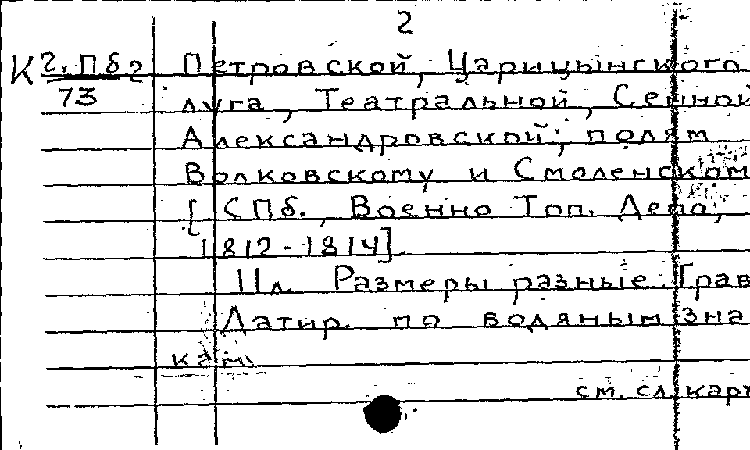 2
К 2. Пб 2 Петровской, Царицынского
73 луга, Театральной, Сенной
Александровской; полям
Волковскому и Смоленском
[СПб., Военно Топ. Депо,
1812-1814]
11л. Размеры разные. Грав
Датир. по водяным зна
кам.
см. сл. карт